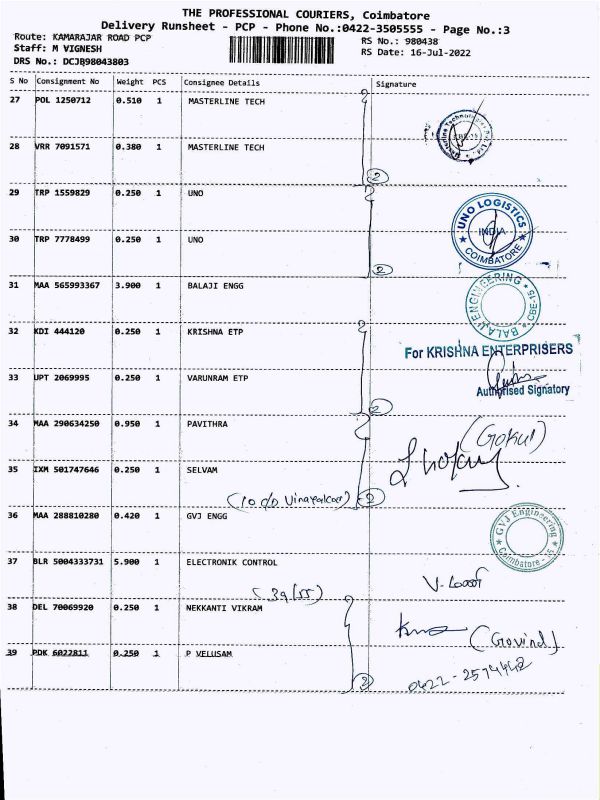 THE PROFESSIONAL COURIERS, Coimbatore
Delivery Runsheet - PCP - Phone No.:0422-3505555 - Page No.:3
Route: KAMARAJAR ROAD PCP
RS No.: 980438
Staff: M VIGNESH
RS Date: 16-Jul-2022
DRS No.: DCJB98043803
S No Consignment No Weight PCS Consignee Details Signature
27 POL 1250712 0.510 1 MASTERLINE TECH
28 VRR 7091571 0.380 1 MASTERLINE TECH
2
29 TRP 1559829 0.250 1 UNO
UNO LOGISTICS
INDIA
COIMBATORE
30 TRP 7778499 0.250 1 UNO
2
31 MAA 565993367 3.900 1 BALAJI ENGG
BALAJI ENGINEERING
CBE-15
32 KDI 444120 0.250 1 KRISHNA ETP
For KRISHNA ENTERPRISERS
33 UPT 2069995 0.250 1 VARUNRAM ETP
Authorised Signatory
2
34 MAA 290634250 0.950 1 PAVITHRA
(Gokul)
35 IXM 501747646 0.250 1 SELVAM
2
36 MAA 288810280 0.420 1 GVJ ENGG
GVJ Engineering
Coimbatore - 15
37 BLR 5004333731 5.900 1 ELECTRONIC CONTROL
38 DEL 70069920 0.250 1 NEKKANTI VIKRAM
(Govind)
39 PDK 6022811 0.250 1 P VELUSAM
2
0422-2574442